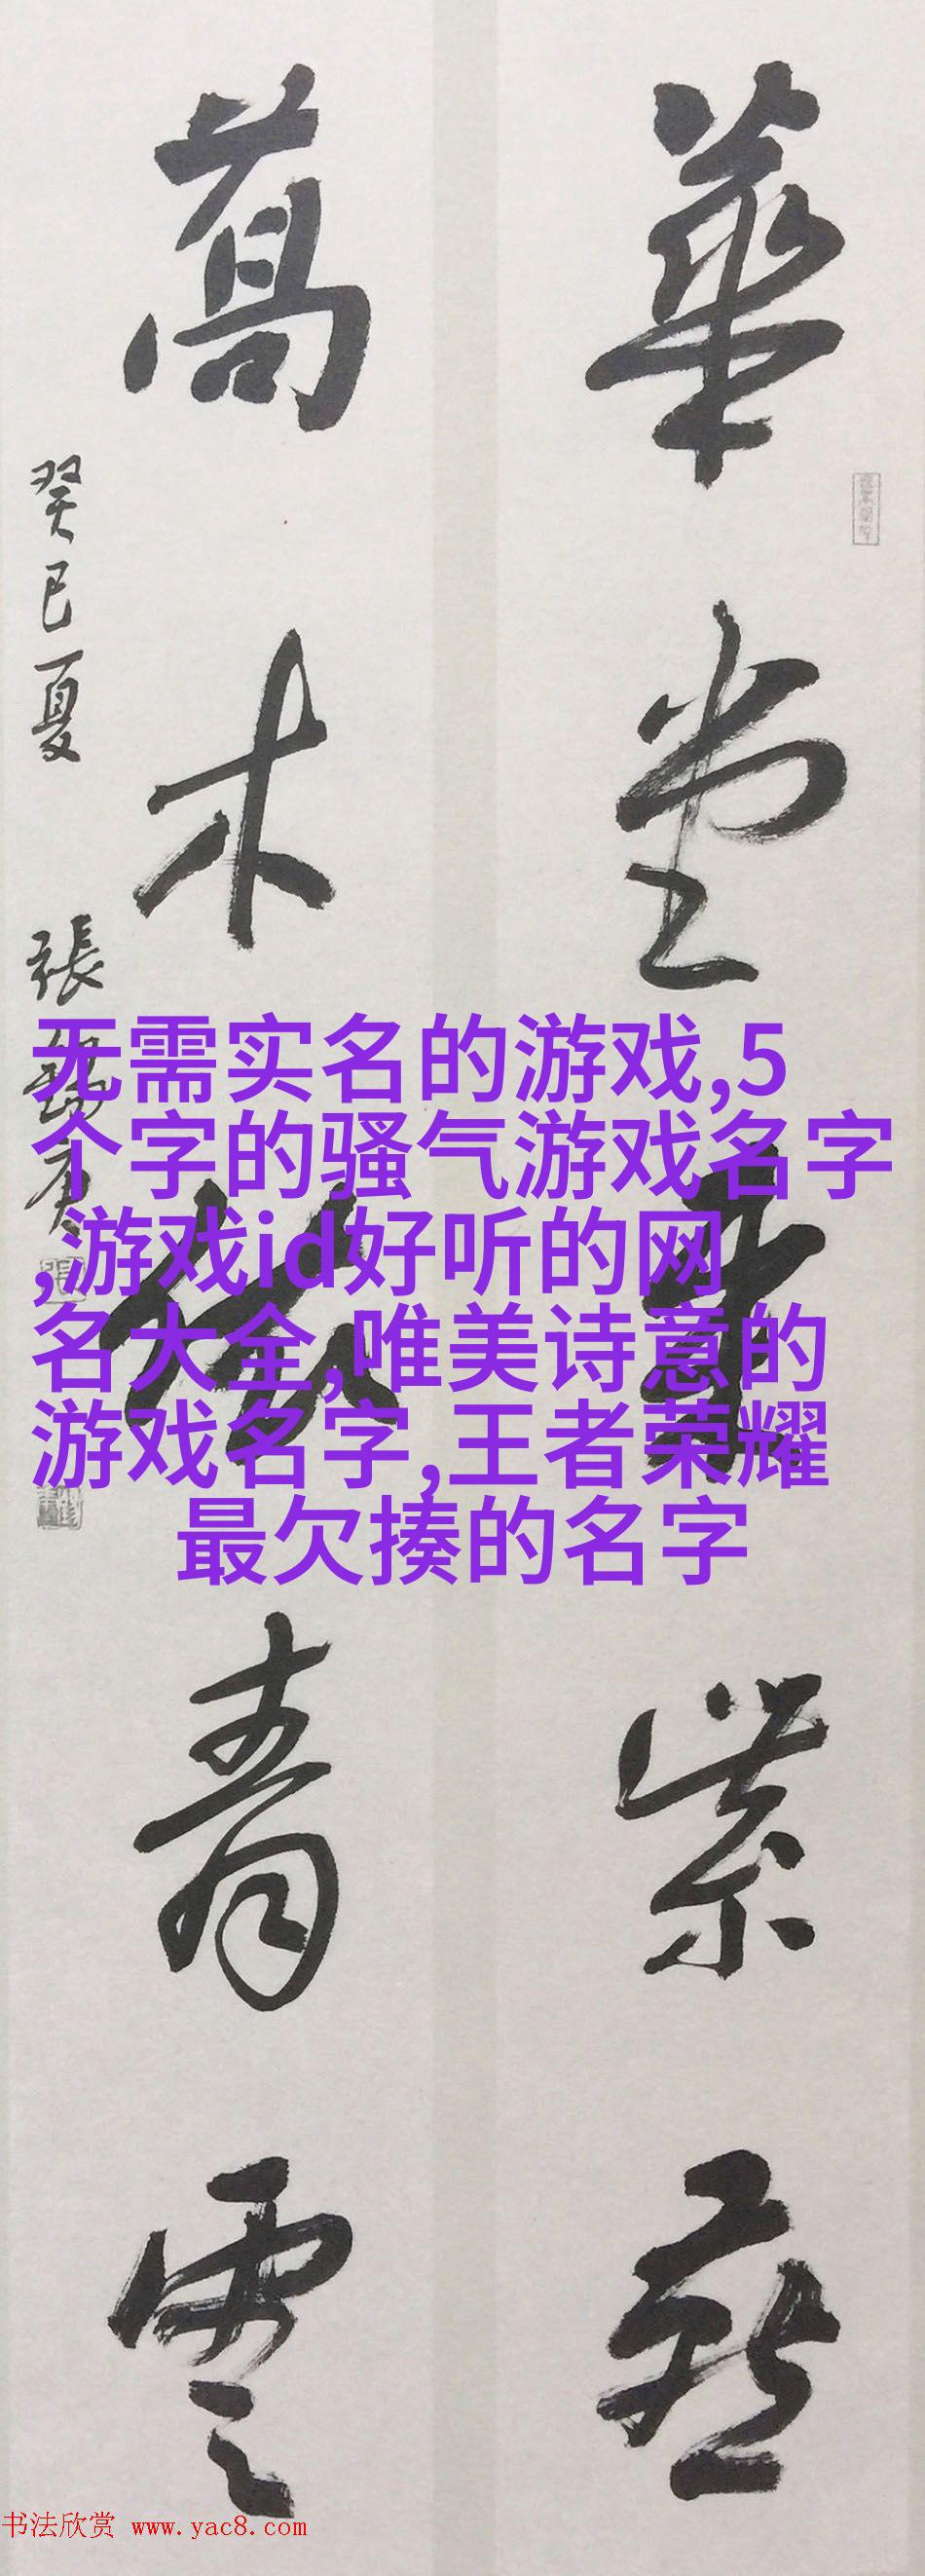 華堂紫
萬木青雲
癸巳夏 張
无需实名的游戏,5
个字的骚气游戏名字
,游戏id好听的网
名大全,唯美诗意的
游戏名字,王者荣耀
最欠揍的名字
书法欣赏 www.yac8.com